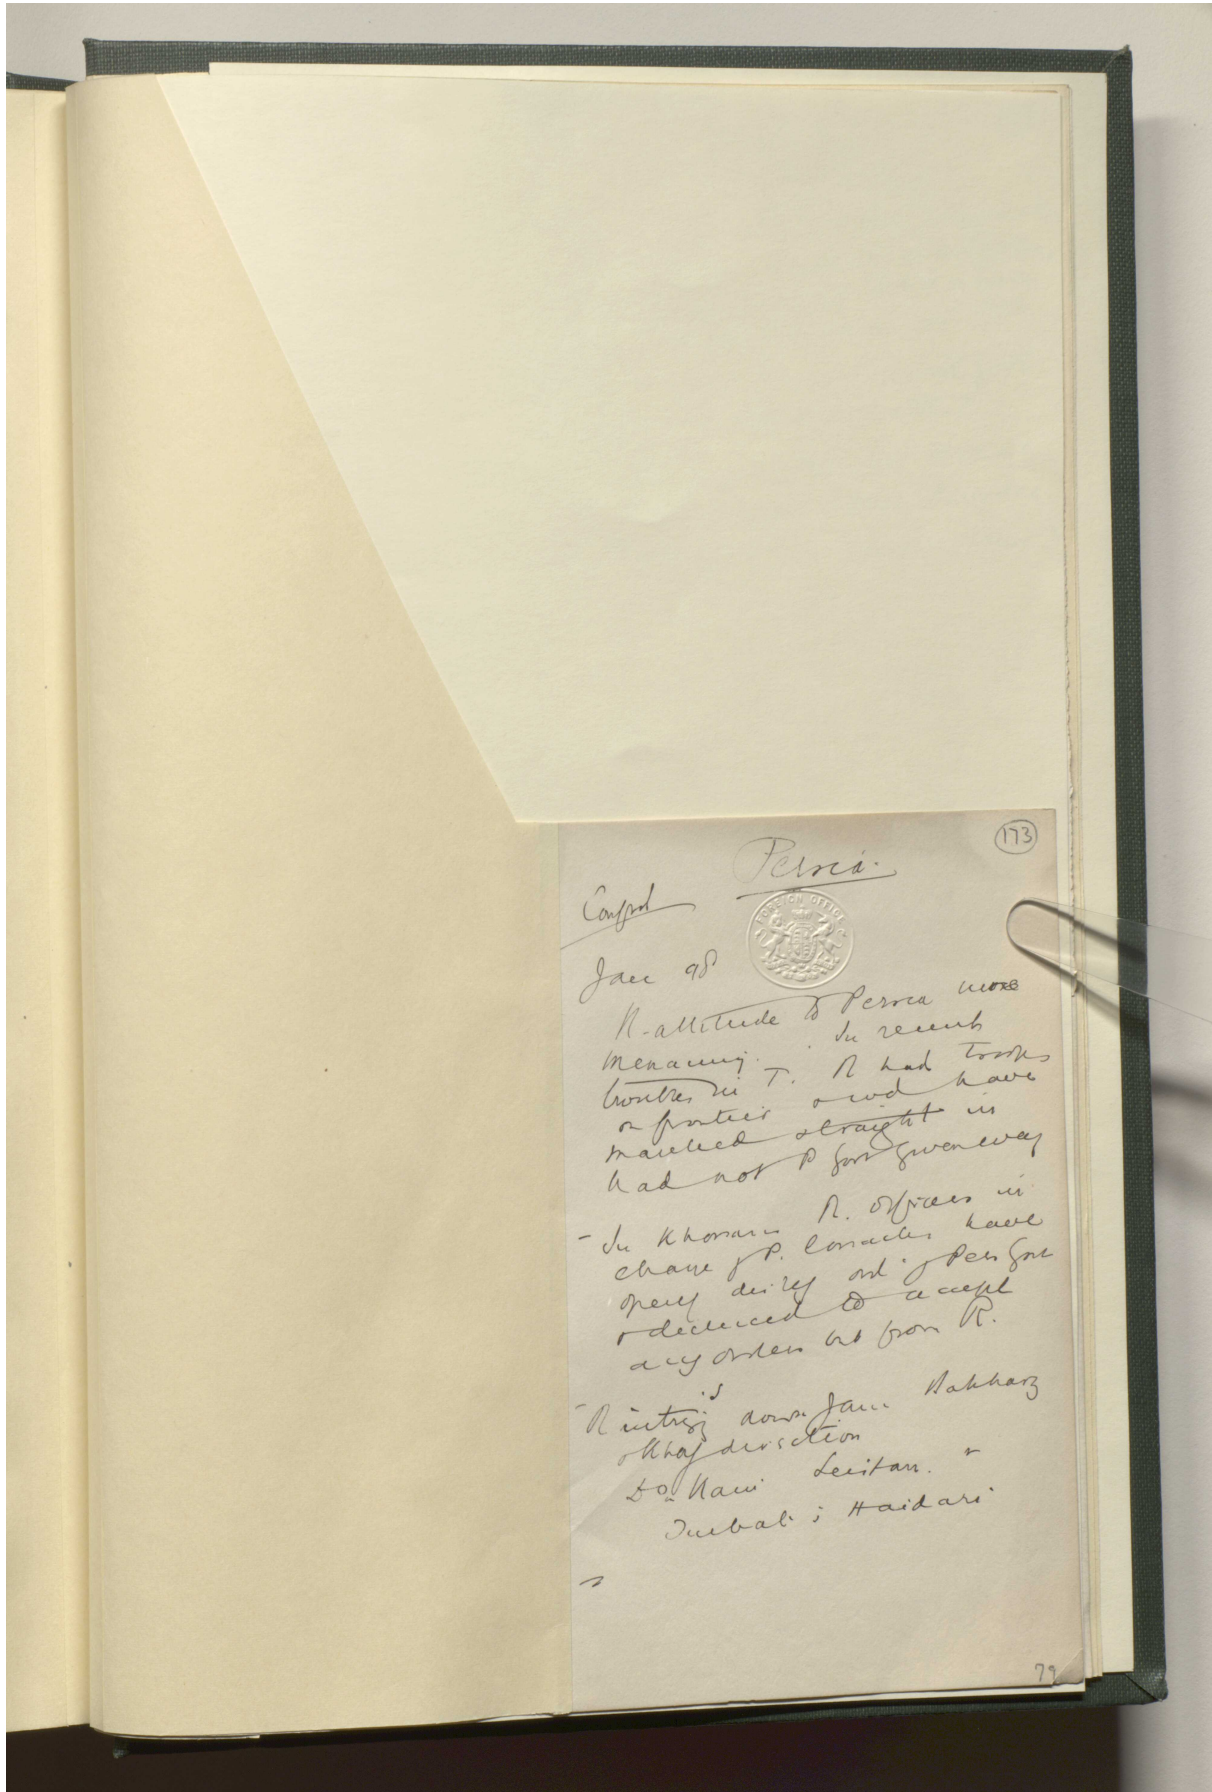 173
Persia.
FOREIGN OFFICE
Jan 98
R. attitude to Persia more
menacing. In recent
troubles in T. R had troops
on frontier & wd have
marched straight in
had not P Govt given way
- In Khorasan R. officers in
charge of P. Cossacks have
openly ord. of Pers Govt
& declined to accept
any orders but from R.
- R down Jam Bakharz
& Khaf direction
Do Kain Seistan. &
Turbat i Haidari
79